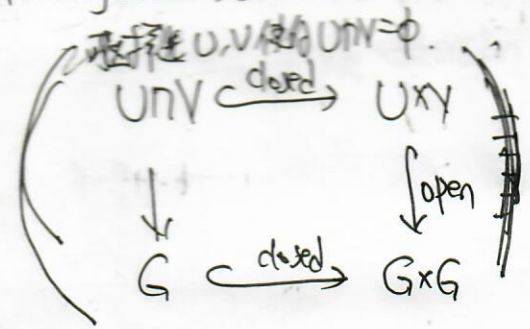 U,V使得U∩V=φ.
closed
U∩V ↪ U×V
↓ ↓ open
closed
G ↪ G×G